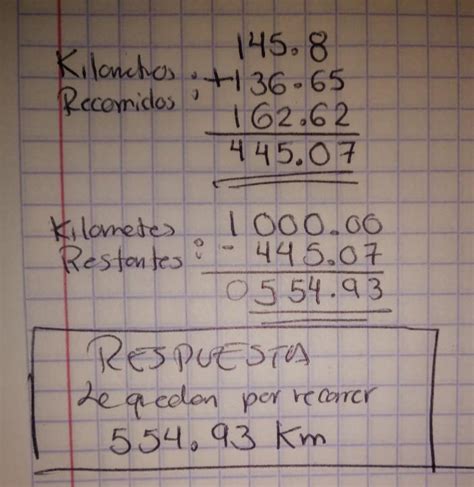 145.8
Kilometros : +136.65
Recorridos : 162.62
445.07
Kilometes 1 000.00
Restantes : - 445.07
0554.93
RESPUESTA
Le quedan por recorrer
554.93 Km